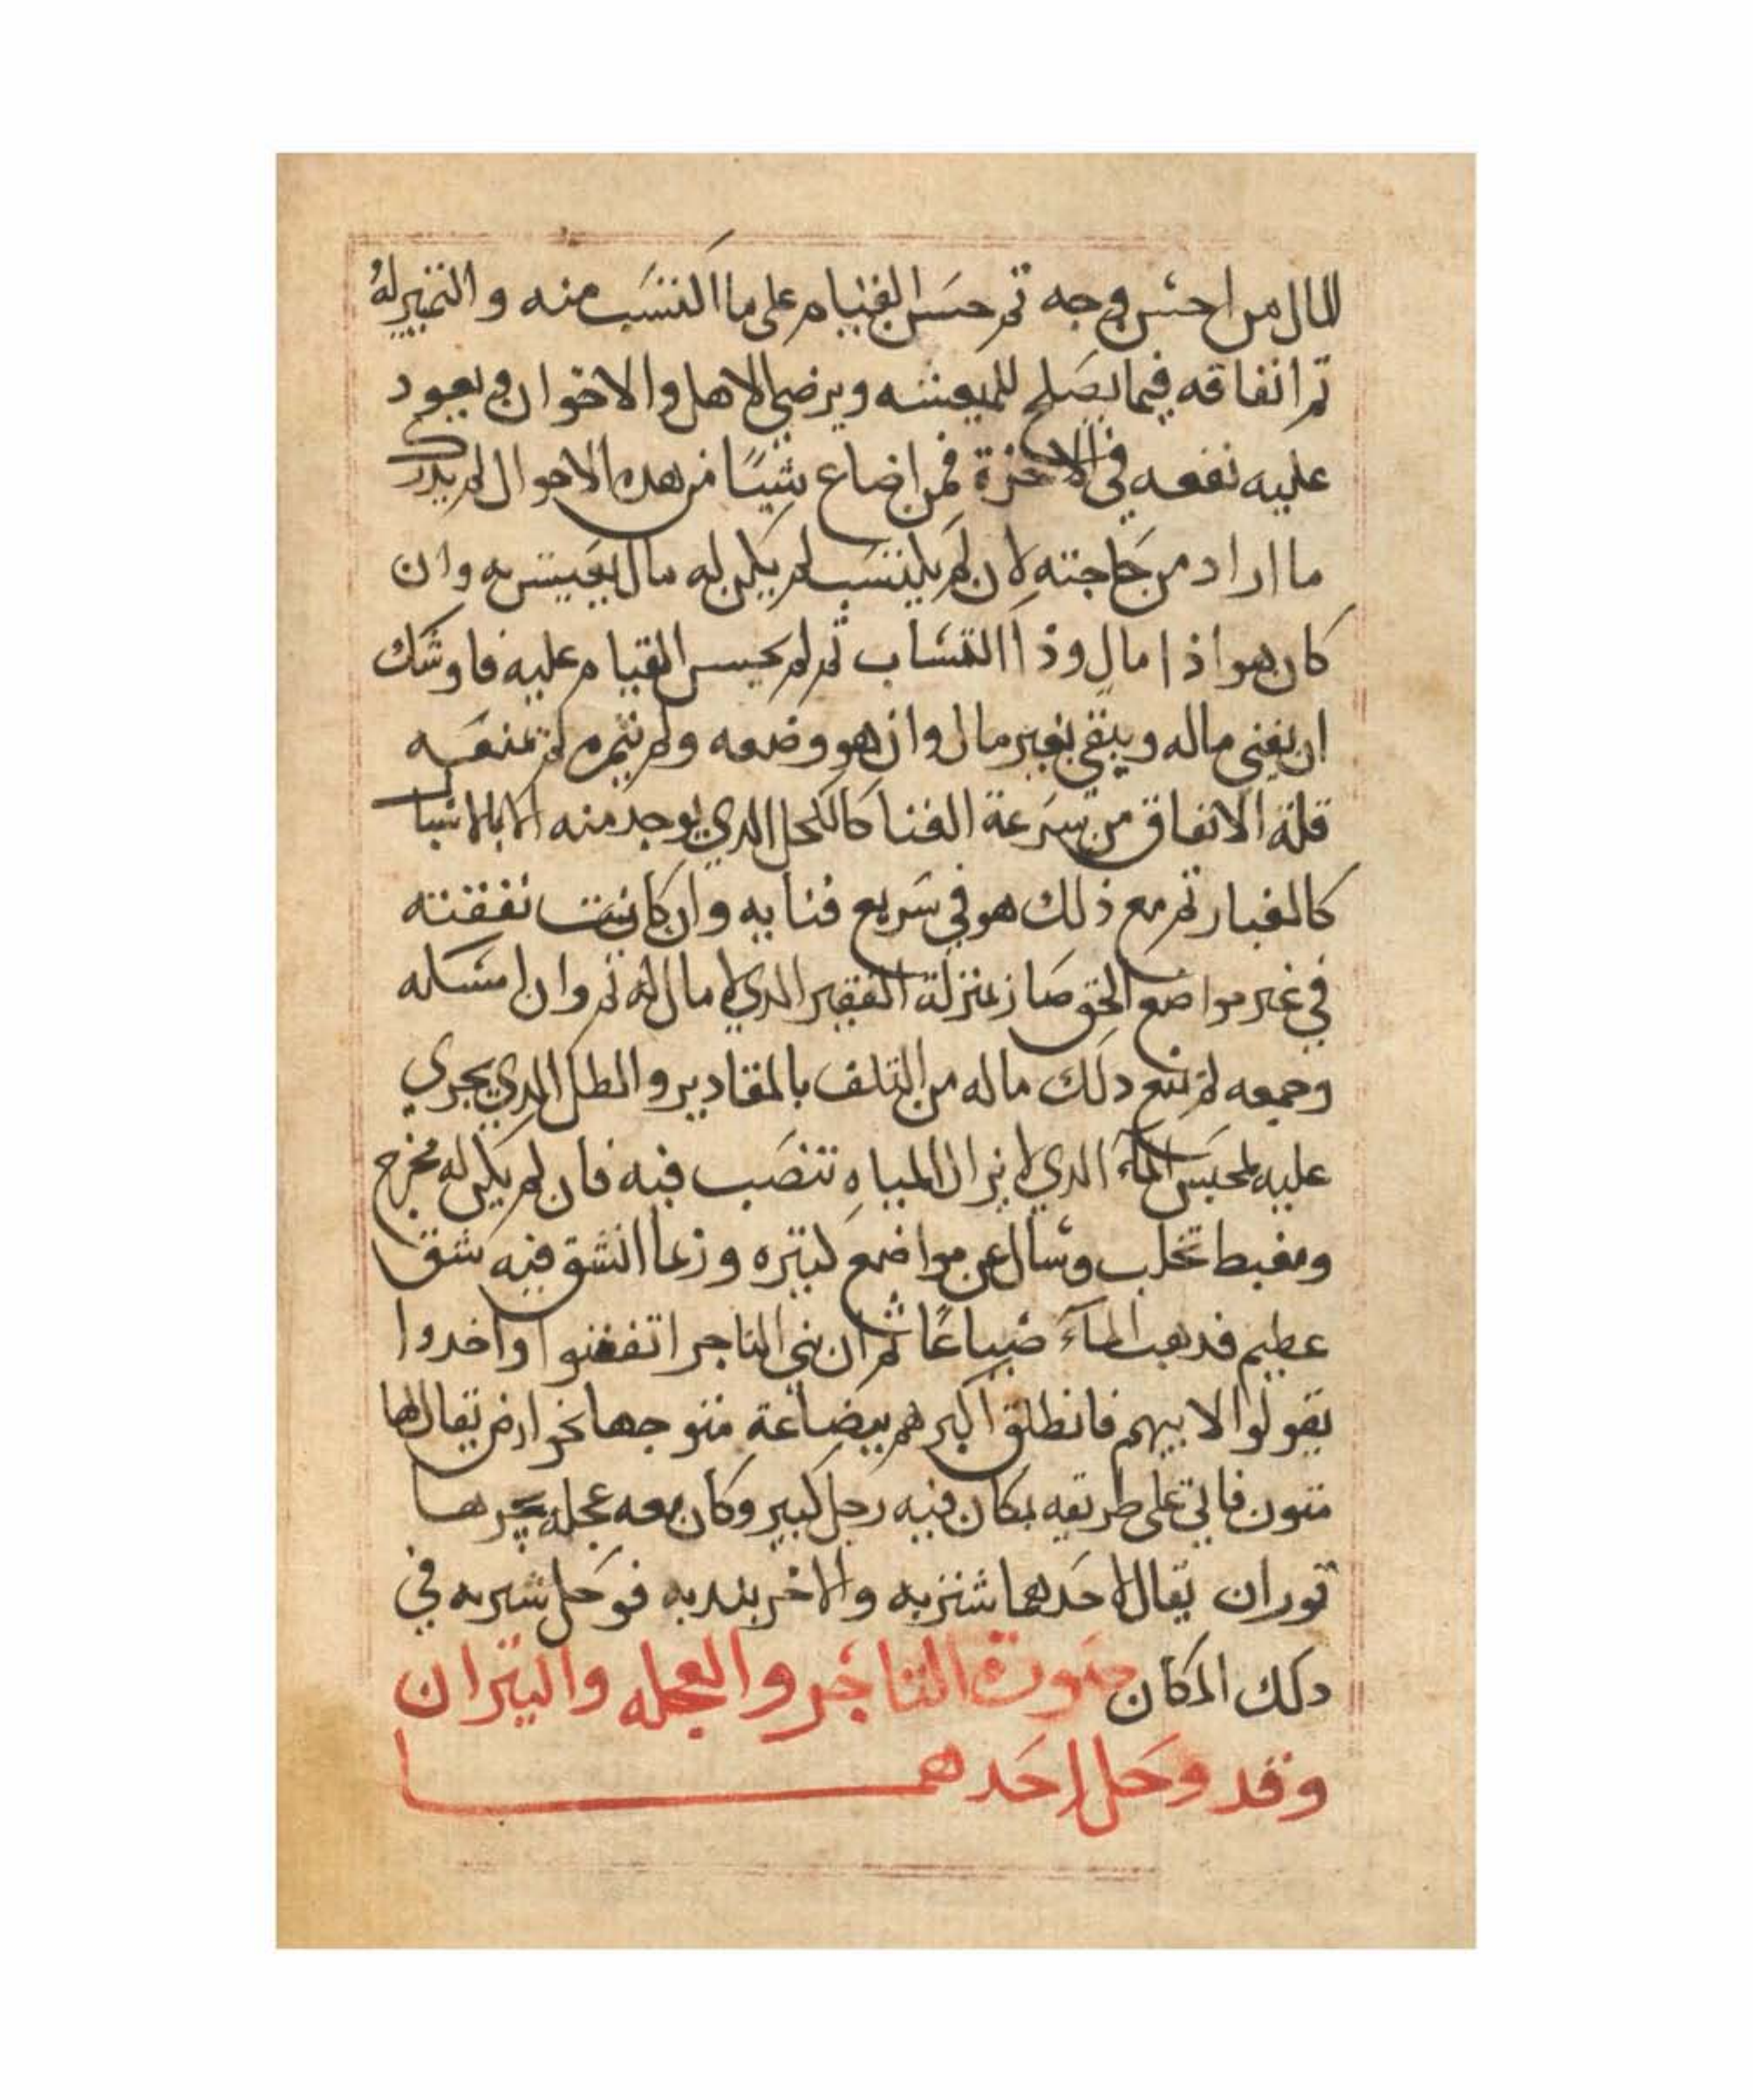 المال من احسن وجه ثم حسن القيام على ما اكتسب منه والتثمير له
ثم انفاقه فيما يصلح للمعيشه ويرضي الاهل والاخوان ويعود
عليه نفعه في الاخرة فمن اضاع شيئا من هده الاحوال لم يدرك
ما اراد من حاجته لان لم يكتسب لم يكن له مال يعيش به وان
كان هو اذا مال وذا اكتساب ثم لم يحسن القيام عليه فاوشك
ان يفني ماله ويبقى بغير مال وان هو وضعه ولم يثمره لم تمنعه
قلة الانفاق من سرعة الفنا كالكحل الدي يوجد منه الا بالاشيا
كالغبار ثم مع ذلك هو في سريع فنايه وان كانت نفقته
في غير مواضع الحق صار بمنزلة الفقير الدي لا مال له ثم وان امسكه
وجمعه لم يمنع دلك ماله من التلف بالمقادير والطل الدي يجري
عليه لمحبس الماء الدي لا يزال المياه تنصب فيه فان لم يكن له مخرج
ومغيط تحلب وسال من مواضع كثيره وربما انشق فيه شق
عطيم فدهب الماء ضياعا ثم ان بني التاجر اتفقنوا واخدوا
بقولوا لابيهم فانطلق اكبرهم ببضاعة متوجها نحو ارض يقال لها
متون فاتى على طريقه بمكان فيه رحل كبير وكان معه عجله يجرها
توران يقال لاحدهما شنزبه والاخر بندبه فوحل شنزبه في
دلك المكان صورة التاجر والعجله والتيران
وقد وحل احدهما